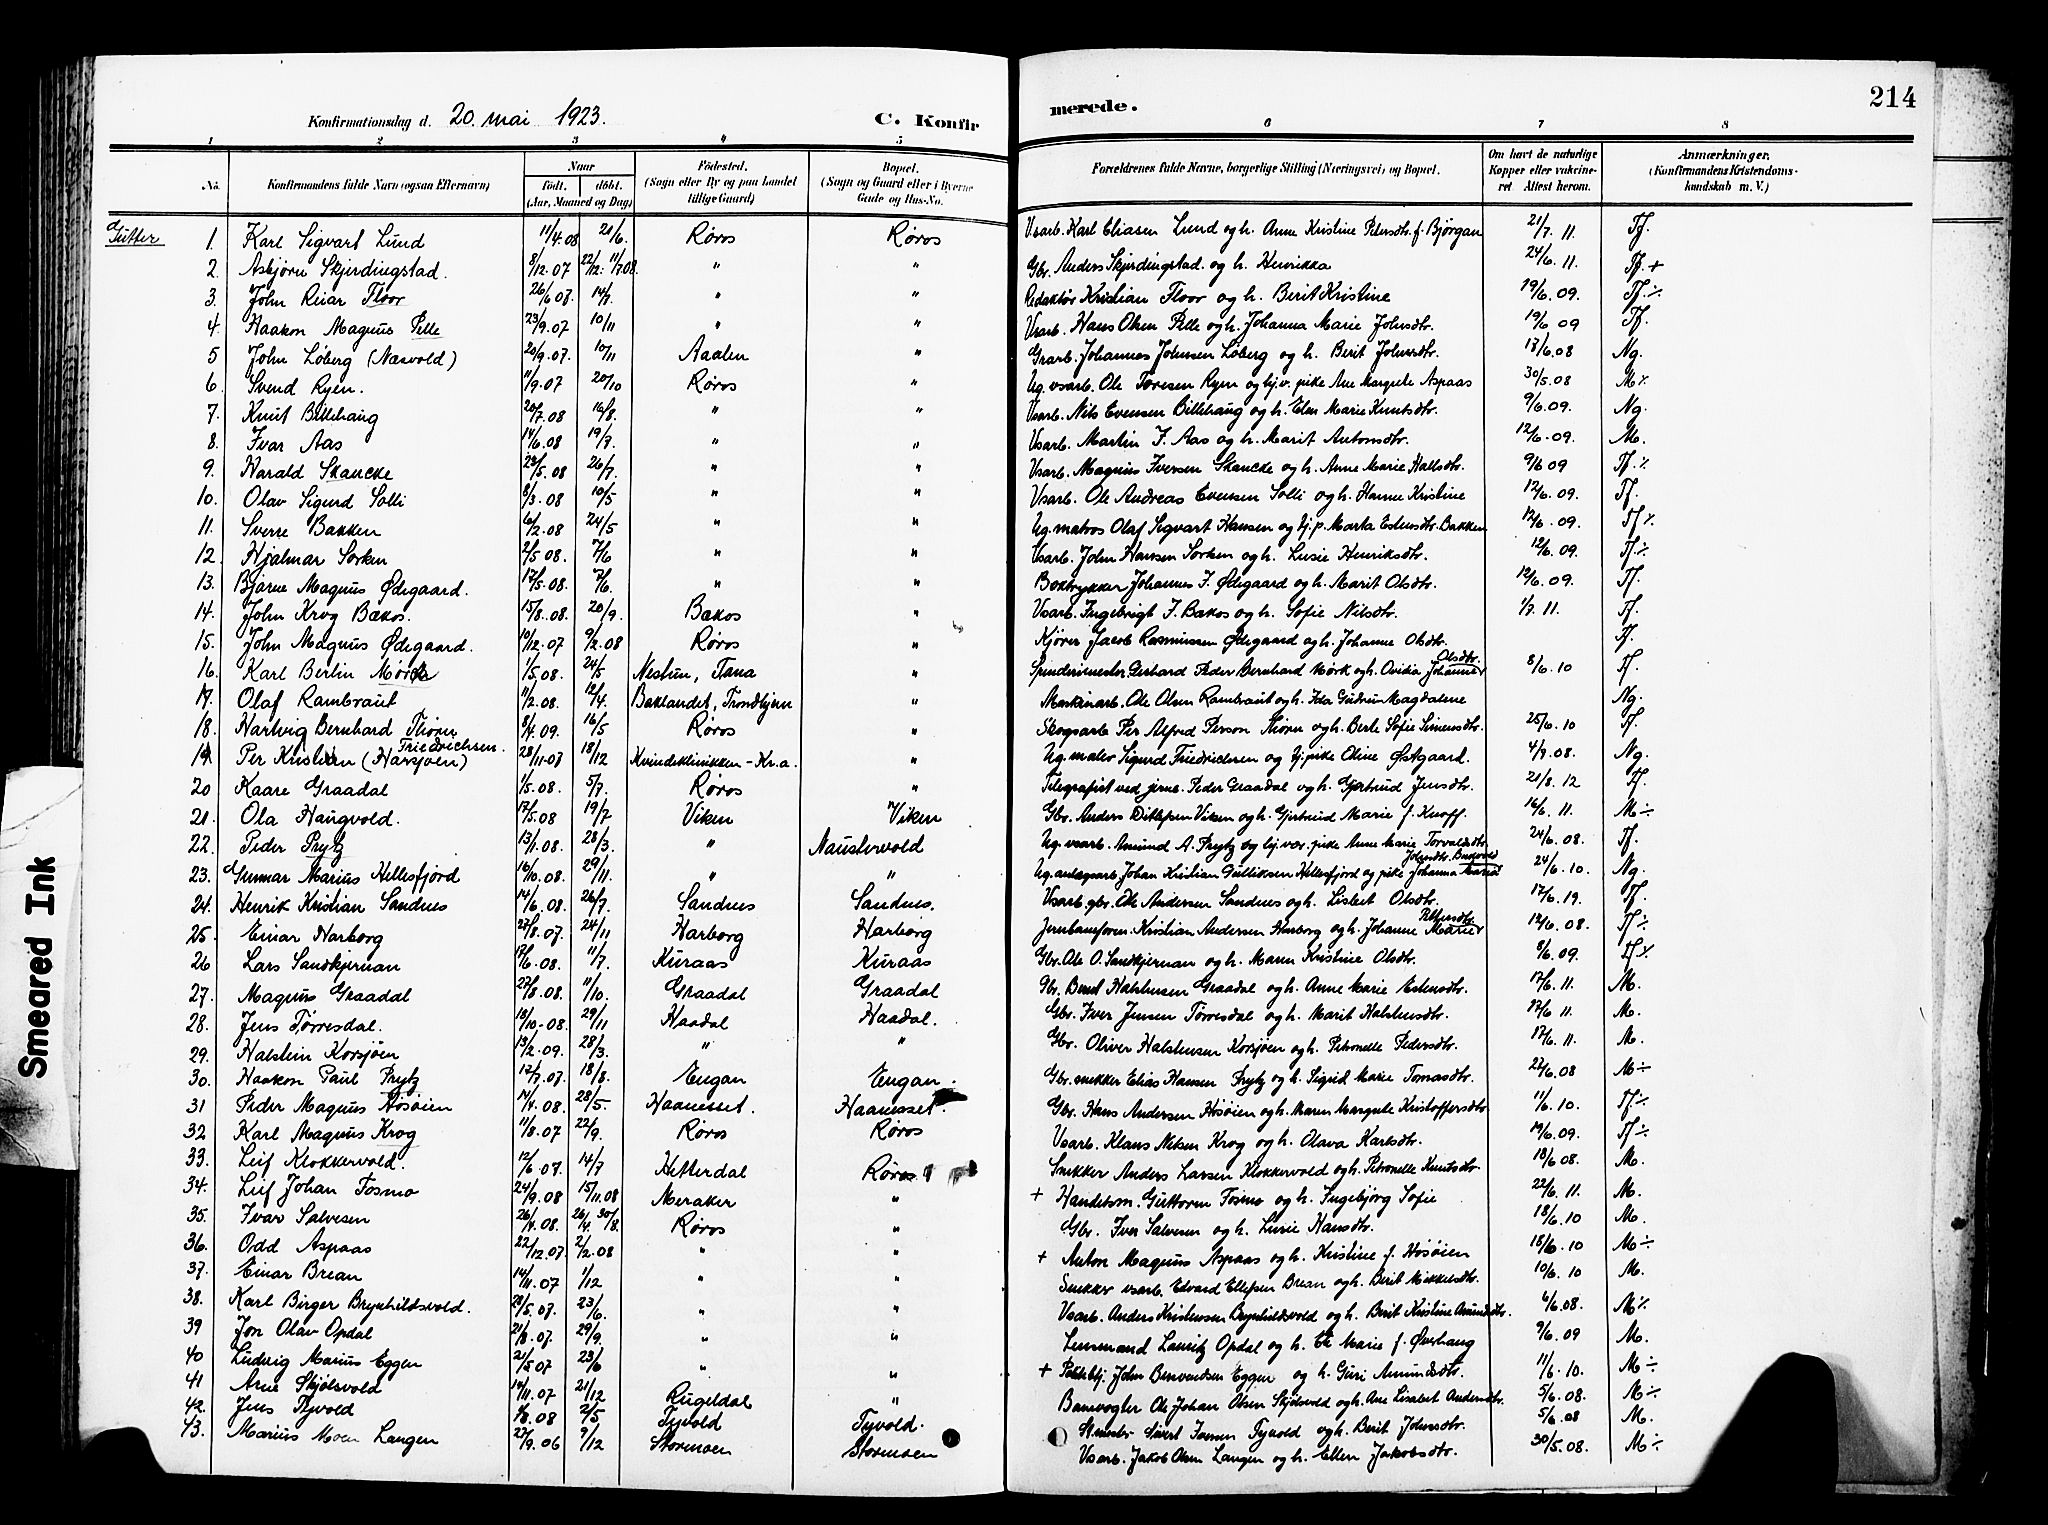 Smeared Ink
Konfirmationsdag d. 20. mai 1923. C. Konfirmerede. 214
1 2 3 4 5 6 7 8
No. Konfirmandens fulde Navn (ogsaa Efternavn) Naar født. døbt. (Aar, Maaned og Dag) Fødested. (Sogn eller By og paa Landet tillige Gaard) Bopæl. (Sogn og Gaard eller i Byerne Gade og Hus-No. Forældrenes fulde Navne, borgerlige Stilling (Næringsvei) og Bopæl. Om havt de naturlige Kopper eller vakcineret. Attest herom. Anmærkninger. (Konfirmandens Kristendomskundskab m. V.)
Gutter 1. Karl Sigvart Lund 11/4.08 21/6. Røros Røros Vsarb. Karl Eliasen Lund og h. Anne Kristine Petersdtr. f. Bjørgan 21/7. 11. Tf.
2. Asbjørn Skjerdingstad. 8/12.07 22/12. 11/7 08. " " Gbr. Anders Skjerdingstad og h. Henrikka 24/6. 11. Tf. +
3. John Reiar Floor 26/6 07. 14/7. " " Redaktør Kristian Floor og h. Berit Kristine 19/6. 09. Tf. ÷
4. Haakon Magnus Pelle 23/9.07 10/11 " " Vsarb. Hans Olsen Pelle og h. Johanna Marie Johnsdtr. 19/6 09 Tf.
5 John Løberg (Næsvold) 20/9.07. 10/11 Aalen " Grarb. Johannes Johnsen Løberg og h. Berit Johnsdtr. 13/6.08 Ng.
6. Svend Ryen. 11/9.07 20/10 Røros " Ug. vsarb. Ole Toresen Ryen og tj.v. pike Ane Margrete Aspaas 30/5.08 M ÷
7. Knut Billehaug 20/7.08 16/8. " " Vsarb. Nils Evensen Billehaug og h. Elen Marie Knutsdtr. 9/6.09. Ng.
8. Ivar Aas 14/6.08 19/7. " " Vsarb. Martin I. Aas og h. Marit Antonsdtr. 12/6.09. M.
9. Harald Skancke 23/5.08 26/7. " " Vsarb. Magnus Iversen Skancke og h. Anne Marie Hallsdtr. 9/6 09 Tf. ÷
10. Olav Sigurd Solli 8/3.08 10/5 " " Vsarb. Ole Andreas Evensen Solli og h. Hanne Kristine 12/6.09. Tf.
11. Sverre Bakken 6/2.08 24/5 " " Ug. matros Olaf Sigvart Hansen og tj. p. Marta Estensdtr. Bakken 12/6.09. Tf ÷
12. Hjalmar Sorken 2/5 08. 7/6 " " Vsarb. John Hansen Sorken og h. Lusie Henriksdtr. 12/6.09. Tf. ÷
13. Bjarne Magnus Ødegaard. 17/5.08. 7/6. " " Boktrykker Johannes I. Ødegaard og h. Marit Olsdtr. 12/6.09. Tf.
14. John Krog Bækos. 15/8.08. 20/9. Bækos " Vsarb. Ingebrigt I. Bækos og h. Sofie Nilsdtr. 1/7. 11. Tf.
15. John Magnus Ødegaard. 10/12.07 9/2.08 Røros " Kjører Jacob Rasmussen Ødegaard og h. Johanne Olsdtr. Tf.
16. Karl Berlin Mørk 1/5.08. 24/5 Nestun, Fana " Spinderimester Gerhard Peder Bernhard Mørk og h. Ovidia Johanne Olsdtr. 8/6.10 Tf.
17. Olaf Rambraut 11/2.08. 12/4. Baklandet, Trondhjem " Maskinarb. Ole Olsen Rambraut og h. Ida Gudrun Magdalene Ng.
18. Hartvig Bernhard Thorn 8/4.09. 16/5 Røros " Skogsarb. Per Alfred Person Thorn og h. Berte Sofie Simensdtr. 25/6.10 Tf.
19. Per Kristian Friedrichsen (Harsjøen) 28/11.07 18/12 Kvindeklinikken - Kr.a. " Ug. maler Sigurd Friedrichsen og tj. pike Oline Østgaard. 4/9.08. Ng.
20 Kaare Graadal 1/5.08. 5/7. Røros " Telegrafist ved jrnb. Peder Graadal og h. Gjertrud Jensdtr. 21/8. 12 Tf.
21. Ola Haugvold. 17/5.08 19/7 Viken Viken Gbr. Anders Ditlefsen Viken og h. Gjertrud Marie f. Knoff. 16/6. 11. M ÷
22. Peder Prytz 13/1.08. 28/3. " Nausterwold Ug. vsarb. Amund A. Prytz og tj. vær. pike Anne Marie Torvaldsdtr. 24/6.08. Tf.
23. Gunnar Marius Hellesfjord 16/10.08. 29/11. " " Ug. anlægsarb. Johan Kristian Gulliksen Hellesfjord og pike Johanna Maria 24/6.10. Ng.
24. Henrik Kristian Sandnes 14/6.08. 26/7. Sandnes Sandnes. Vsarb. gbr. Ole Andersen Sandnes og h. Lisbet Olsdtr. 17/6.19. Tf.
25. Einar Harborg 27/8.07. 24/11 Harborg Harborg Jernbaneform. Kristian Andersen Harborg og h. Johanne Marie 12/6.08. Tf. ÷
26 Lars Sandkjernan 17/6.08. 11/7. Kuraas Kuraas Gbr. Ole O. Sandkjernan og h. Maren Kristine Olsdtr. 8/6.09. Tf ÷
27. Magnus Graadal 27/8.08. 11/10. Graadal Graadal Gbr. Bent Halstensen Graadal og h. Anne Marie Estensdtr. 17/6. 11. M.
28. Jens Tørresdal. 18/10.08. 29/11 Haadal Haadal. Gbr. Iver Jensen Tørresdal og h. Marit Halstensdtr. 17/6 11. M.
29. Halstein Korsjøen 13/2.09. 28/3. " " Gbr. Oliver Halstensen Korsjøen og h. Petronelle Pedersdtr. 17/6. 11. M.
30. Haakon Paul Prytz 17/7.07. 18/8. Engan Engan. Gbr. snekker Elias Hansen Prytz og h. Sigrid Marie Tomasdtr. 22/6.08 M ÷
31 Peder Magnus Høsøien 14/4.08. 28/5. Haanesset. Haanesset. Gbr. Hans Andersen Høsøien og h. Maren Margrete Kristoffersdtr. 11/6.10. Tf. ÷
32 Karl Magnus Krog 11/8.07 22/9. Røros Røros Vsarb. Klaus Nilsen Krog og h. Olava Karlsdtr. 19/6.09. Tf ÷
33. Leif Klokkervold. 12/6.07. 14/7 Hitterdal Røros Snekker Anders Larsen Klokkervold og h. Petronelle Knutsdtr. 18/6 08. M.
34. Leif Johan Fosmo 24/9.08 15/11.08 Meraker " + Handelsm. Guttorm Fosmo og h. Ingebjørg Sofie 22/6. 11. M.
35. Ivar Salvesen 26/4.08. 26/4. 30/8. Røros " Gbr. Iver Salvesen og h. Lusie Hansdtr. 18/6.10 M.
36. Odd Aspaas 22/12.07 2/2.08 " " + Anton Magnus Aspaas og h. Kristine f. Høsøien 18/6.10 M ÷
37. Einar Brean 14/11.07 1/12 " " Snekker vsarb. Edvard Ellefsen Brean og h. Berit Mikkelsdtr. 10/6.10 M.
38. Karl Birger Brynhildsvold. 20/5.07. 23/6. " " Vsarb. Anders Kristensen Brynhildsvold og h. Berit Kristine Amundsdtr. 6/6.08. M ÷
39 Jon Olav Opdal 21/8.07. 29/9. " " Lensmand Lauritz Opdal og h. Marie f. Øverhaug 9/6.09 M.
40 Ludvig Marius Eggen 21/5 07 23/6 " " + John Bernventsen Eggen og h. Guri Amundsdtr. 11/6.10. M ÷
41 Arne Skjølsvold 14/11.07 21/12 Rugeldal " Banevogter Ole Johan Olsen Skjølsvold og h. Ane Lisabet Andersdtr. 5/6.08. M ÷
42. Jens Tyvold 4/3.08 2/5 Tyvold Tyvold. Sivert Iversen Tyvold og h. Berit Johnsdtr. 5/6.08 M.
43. Marius Moen Langen 27/9.06 9/12 Stormoen Stormoen Vsarb. Jakob Olsen Langen og h. Ellen Jakobsdtr. 30/5.08. M ÷